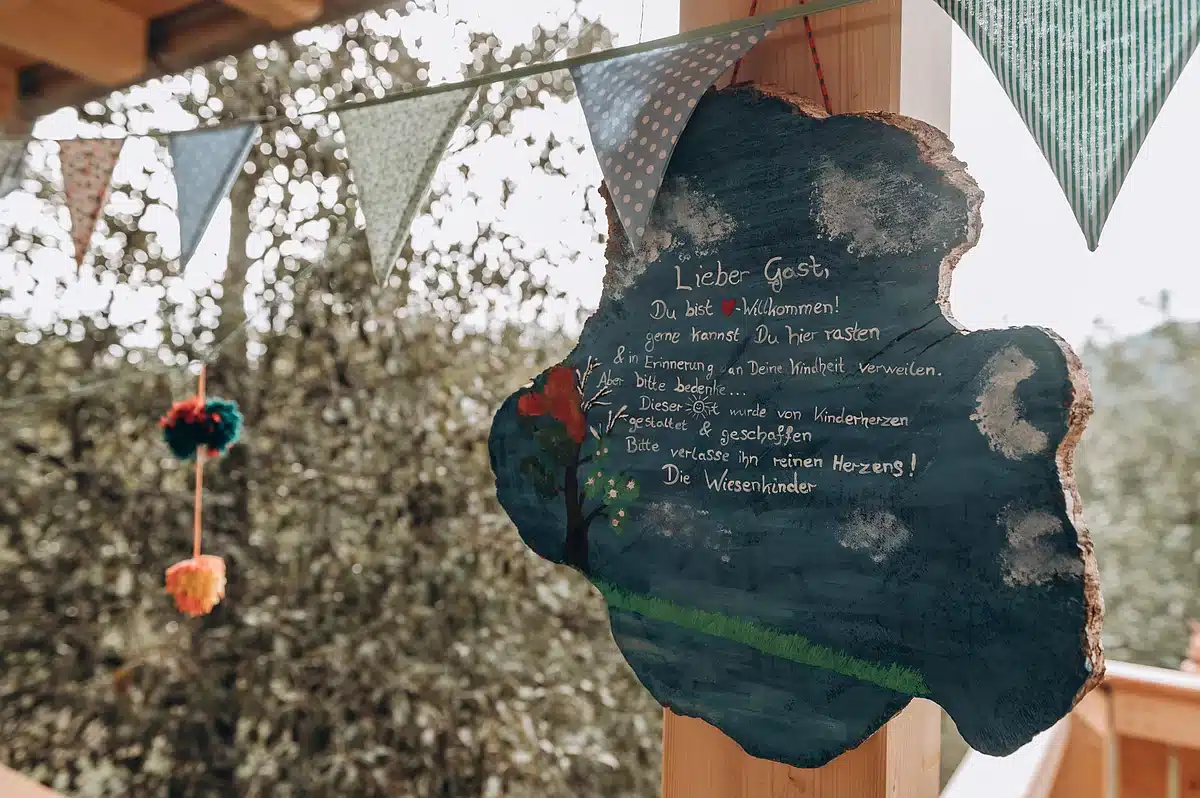 Lieber Gast,
Du bist ♥-Willkommen!
gerne kannst Du hier rasten
& in Erinnerung an Deine Kindheit verweilen.
Aber bitte bedenke...
Dieser Ort wurde von Kinderherzen
gestaltet & geschaffen
Bitte verlasse ihn reinen Herzens!
Die Wiesenkinder